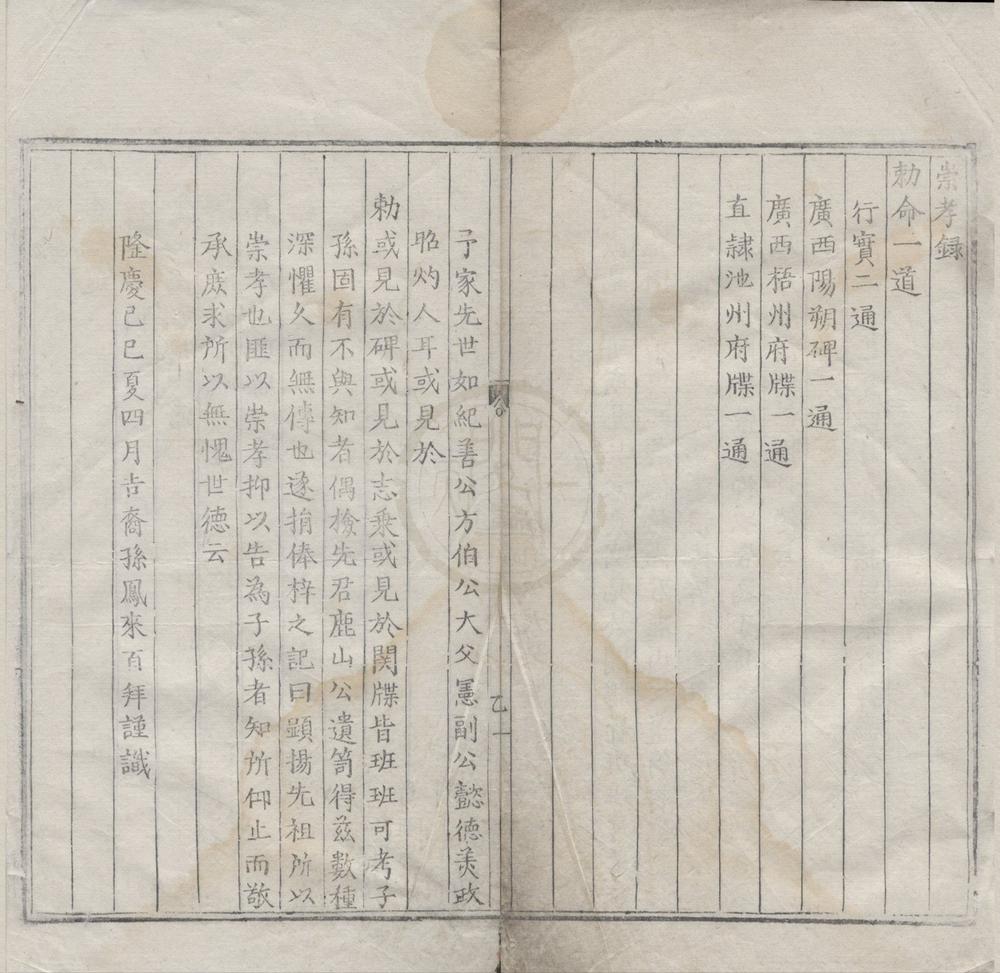 崇孝録
勅命一道
行實二通
廣西陽朔碑一通
廣西梧州府牒一通
直隷池州府牒一通
乙一
予家先世如紀善公方伯公大父憲副公懿德羙政
昭灼人耳或見於
勅或見於碑或見於志乘或見於関牒皆班班可考子
孫固有不與知者偶檢先君鹿山公遺笥得兹數種
深懼久而無傳也遂捐俸梓之記曰顯揚先祖所以
崇孝也匪以崇孝抑以告為子孫者知所仰止而敬
承庻求所以無愧世德云
隆慶己巳夏四月吉裔孫鳳來百拜謹識